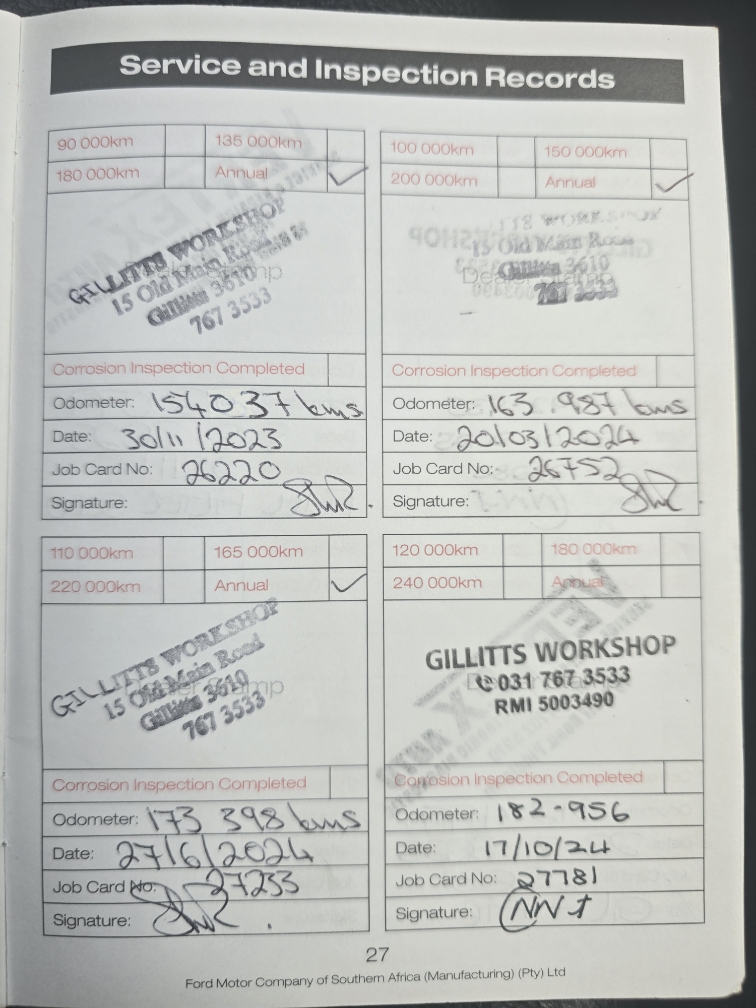 Service and Inspection Records
90 000km 135 000km
180 000km Annual ✓
Dealer Stamp
GILLITTS WORKSHOP
15 Old Main Road
Gillitts 3610
767 3533
Corrosion Inspection Completed
Odometer: 154037 kms
Date: 30/11/2023
Job Card No: 26220
Signature:
100 000km 150 000km
200 000km Annual ✓
Dealer Stamp
15 Old Main Road
Gillitts 3610
767 3533
Corrosion Inspection Completed
Odometer: 163.987 kms
Date: 20/03/2024
Job Card No: 26752
Signature:
110 000km 165 000km
220 000km Annual ✓
Dealer Stamp
GILLITTS WORKSHOP
15 Old Main Road
Gillitts 3610
767 3533
Corrosion Inspection Completed
Odometer: 173 398 kms
Date: 27/6/2024
Job Card No: 27233
Signature:
120 000km 180 000km
240 000km Annual
GILLITTS WORKSHOP
031 767 3533
RMI 5003490
Corrosion Inspection Completed
Odometer: 182-956
Date: 17/10/24
Job Card No: 27781
Signature:
27
Ford Motor Company of Southern Africa (Manufacturing) (Pty) Ltd